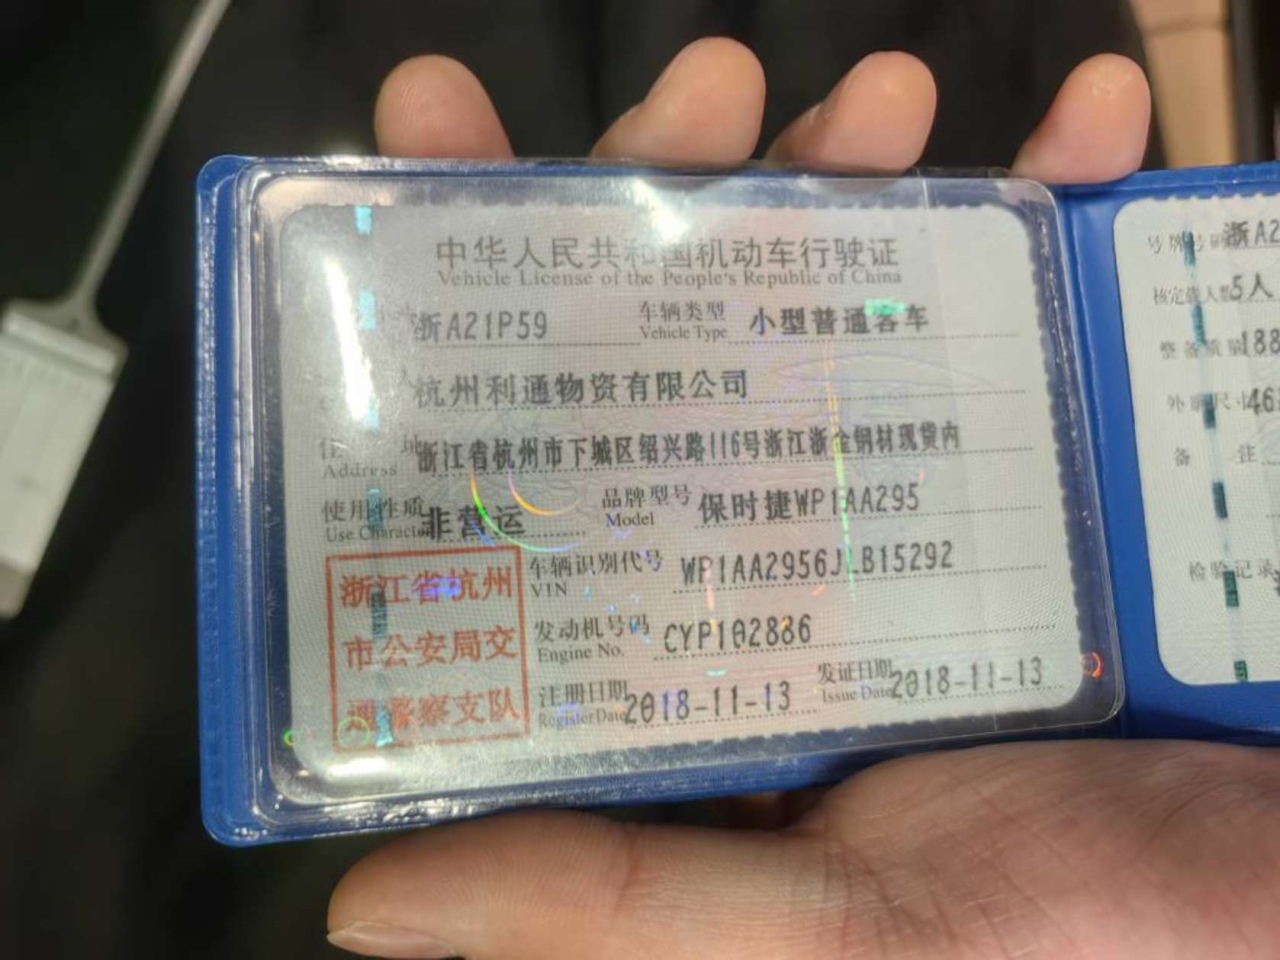 中华人民共和国机动车行驶证
Vehicle License of the People's Republic of China
浙A21P59 车辆类型 Vehicle Type 小型普通客车
人 杭州利通物资有限公司
住 址 Address 浙江省杭州市下城区绍兴路116号浙江浙金钢材现货内
使用性质 Use Character 非营运 品牌型号 Model 保时捷WP1AA295
车辆识别代号 VIN WP1AA2956JLB15292
发动机号码 Engine No. CYP102886
注册日期 Register Date 2018-11-13 发证日期 Issue Date 2018-11-13
浙江省杭州
市公安局交
通警察支队
号牌号码 浙A2
核定载人数 5人
整备质量 188
外廓尺寸 46
备 注
检验记录